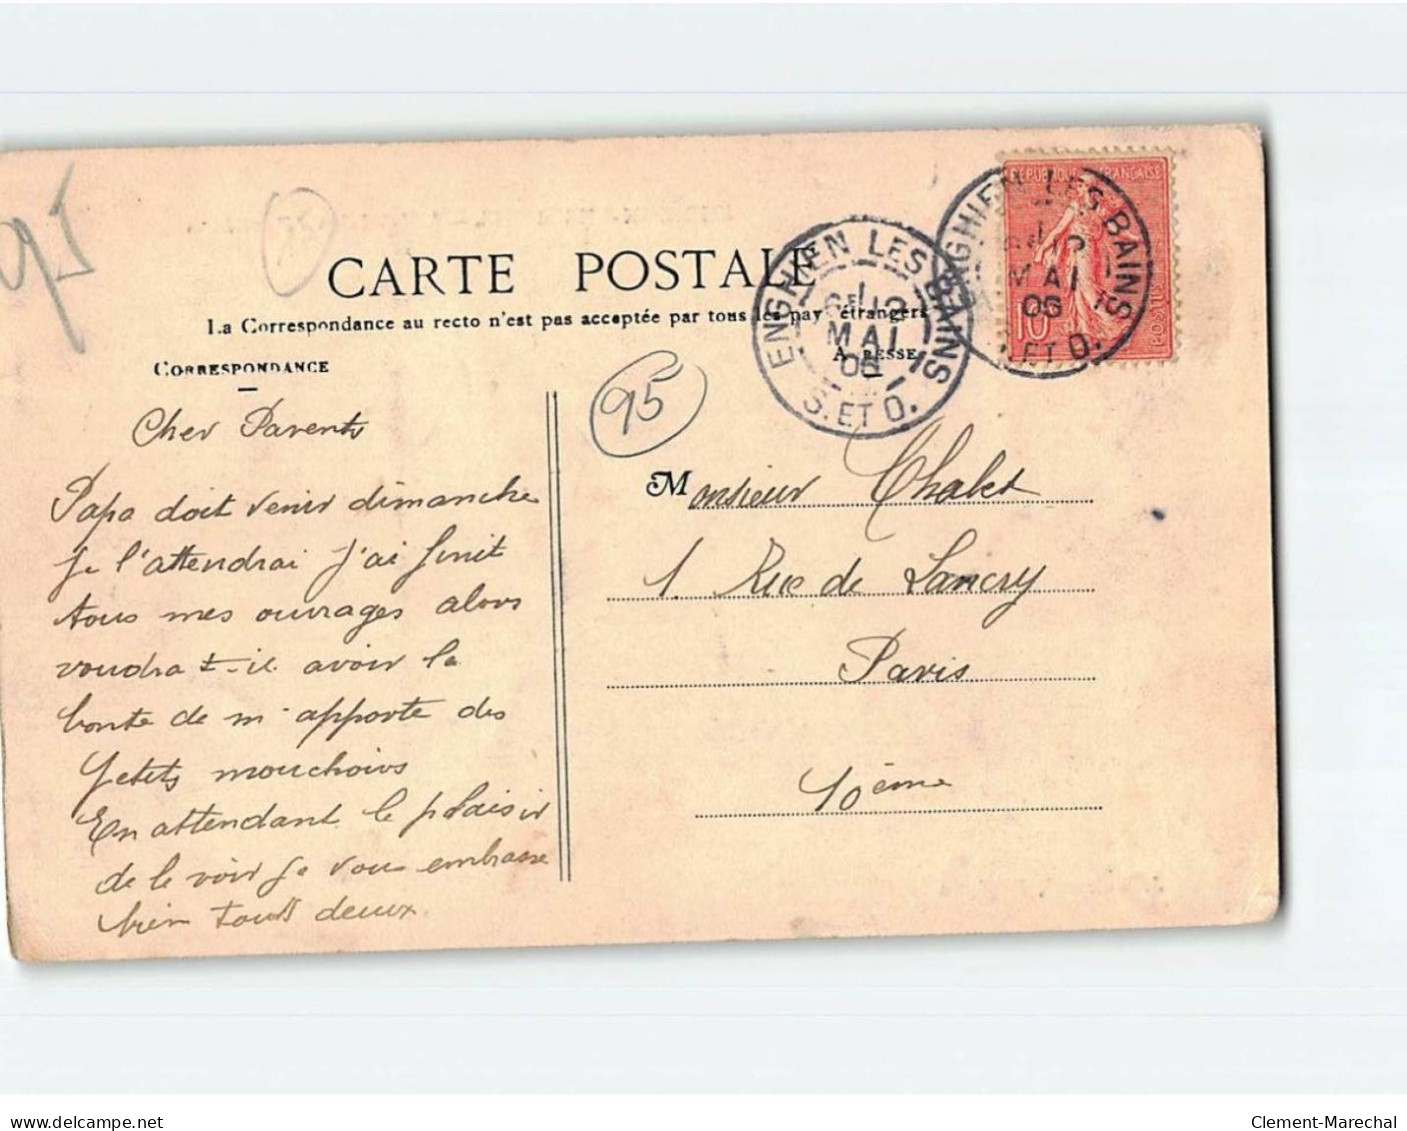 95
95
CARTE POSTALE
La Correspondance au recto n'est pas acceptée par tous les pays étrangers
CORRESPONDANCE
ENGHIEN LES BAINS
MAI
06
S. ET O.
REPUBLIQUE FRANÇAISE
10
POSTES
ENGHIEN LES BAINS
MAI
06
S. ET O.
95
Cher Parents
Papa doit venir dimanche
je l'attendrai j'ai finit
tous mes ouvrages alors
voudra t-il avoir la
bonté de m'apporte des
petits mouchoirs
En attendant le plaisir
de le voir je vous embrasse
bien tous deux.
Monsieur Chalet
1. Rue de Lancry
Paris
10ème
delcampe.net
Clement-Marechal